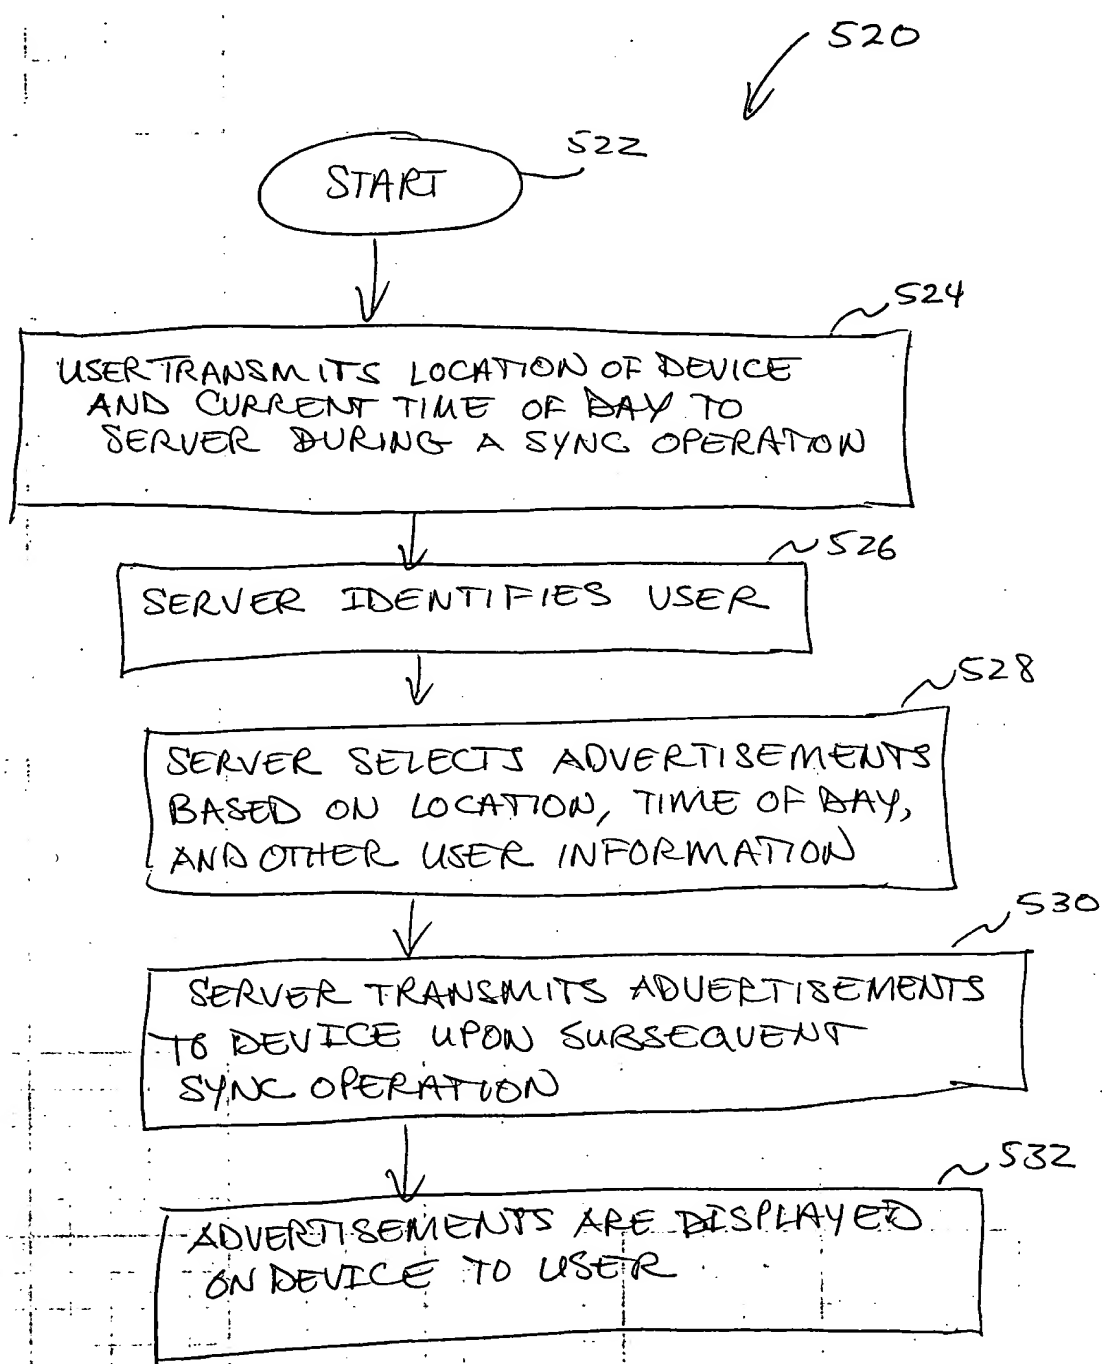 520
START
522
524
USER TRANSMITS LOCATION OF DEVICE
AND CURRENT TIME OF DAY TO
SERVER DURING A SYNC OPERATION
526
SERVER IDENTIFIES USER
528
SERVER SELECTS ADVERTISEMENTS
BASED ON LOCATION, TIME OF DAY,
AND OTHER USER INFORMATION
530
SERVER TRANSMITS ADVERTISEMENTS
TO DEVICE UPON SUBSEQUENT
SYNC OPERATION
532
ADVERTISEMENTS ARE DISPLAYED
ON DEVICE TO USER